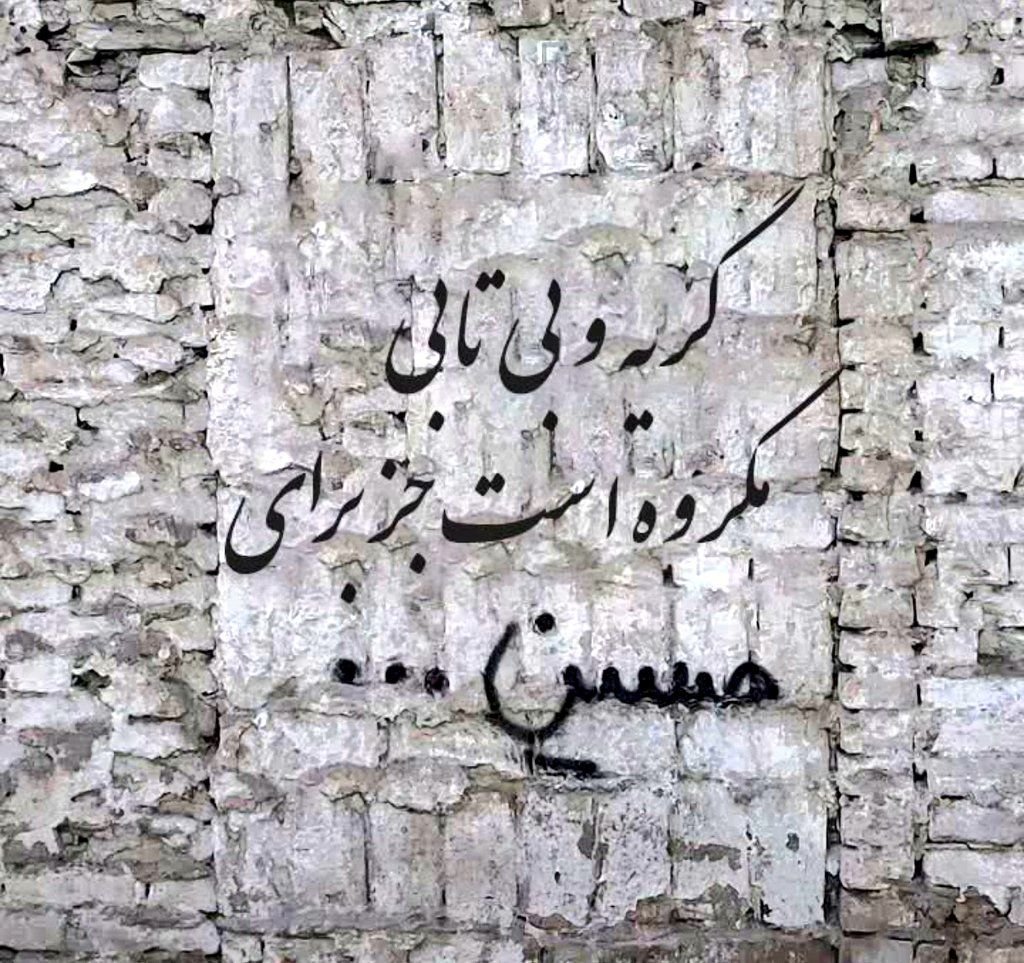 گریه و بی تابی
مکروه است جز برای
حسین ...